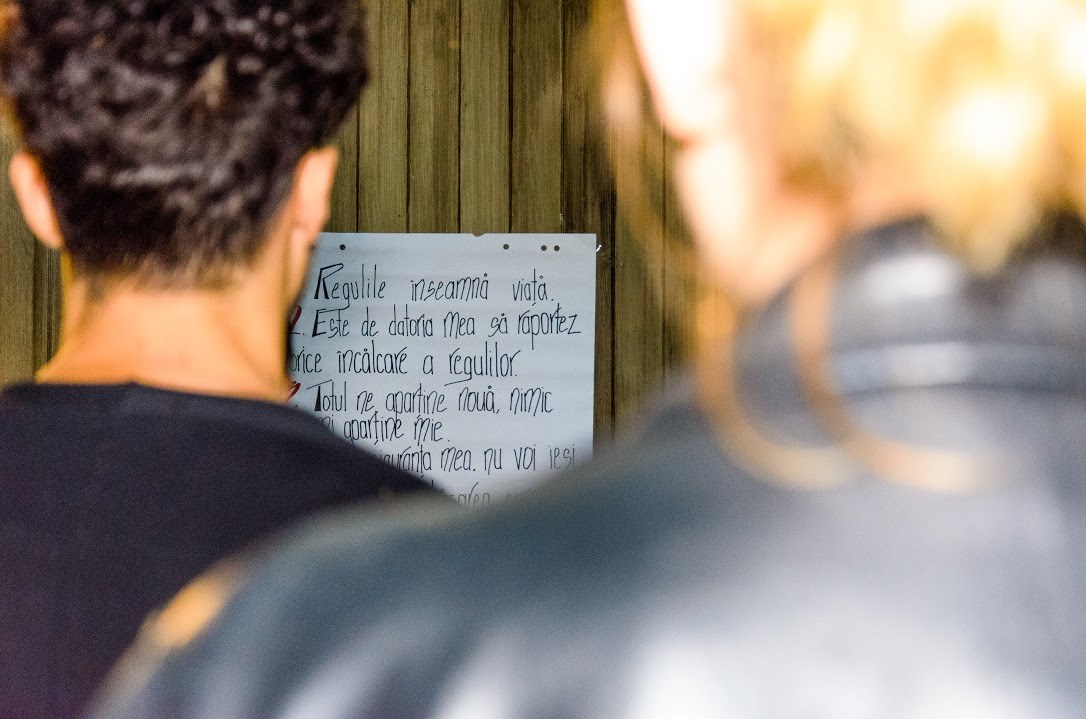 Regulile înseamnă viață.
2. Este de datoria mea să raportez
orice încălcare a regulilor.
Totul ne aparține nouă, nimic
aparține mie.
mea, nu voi ieși